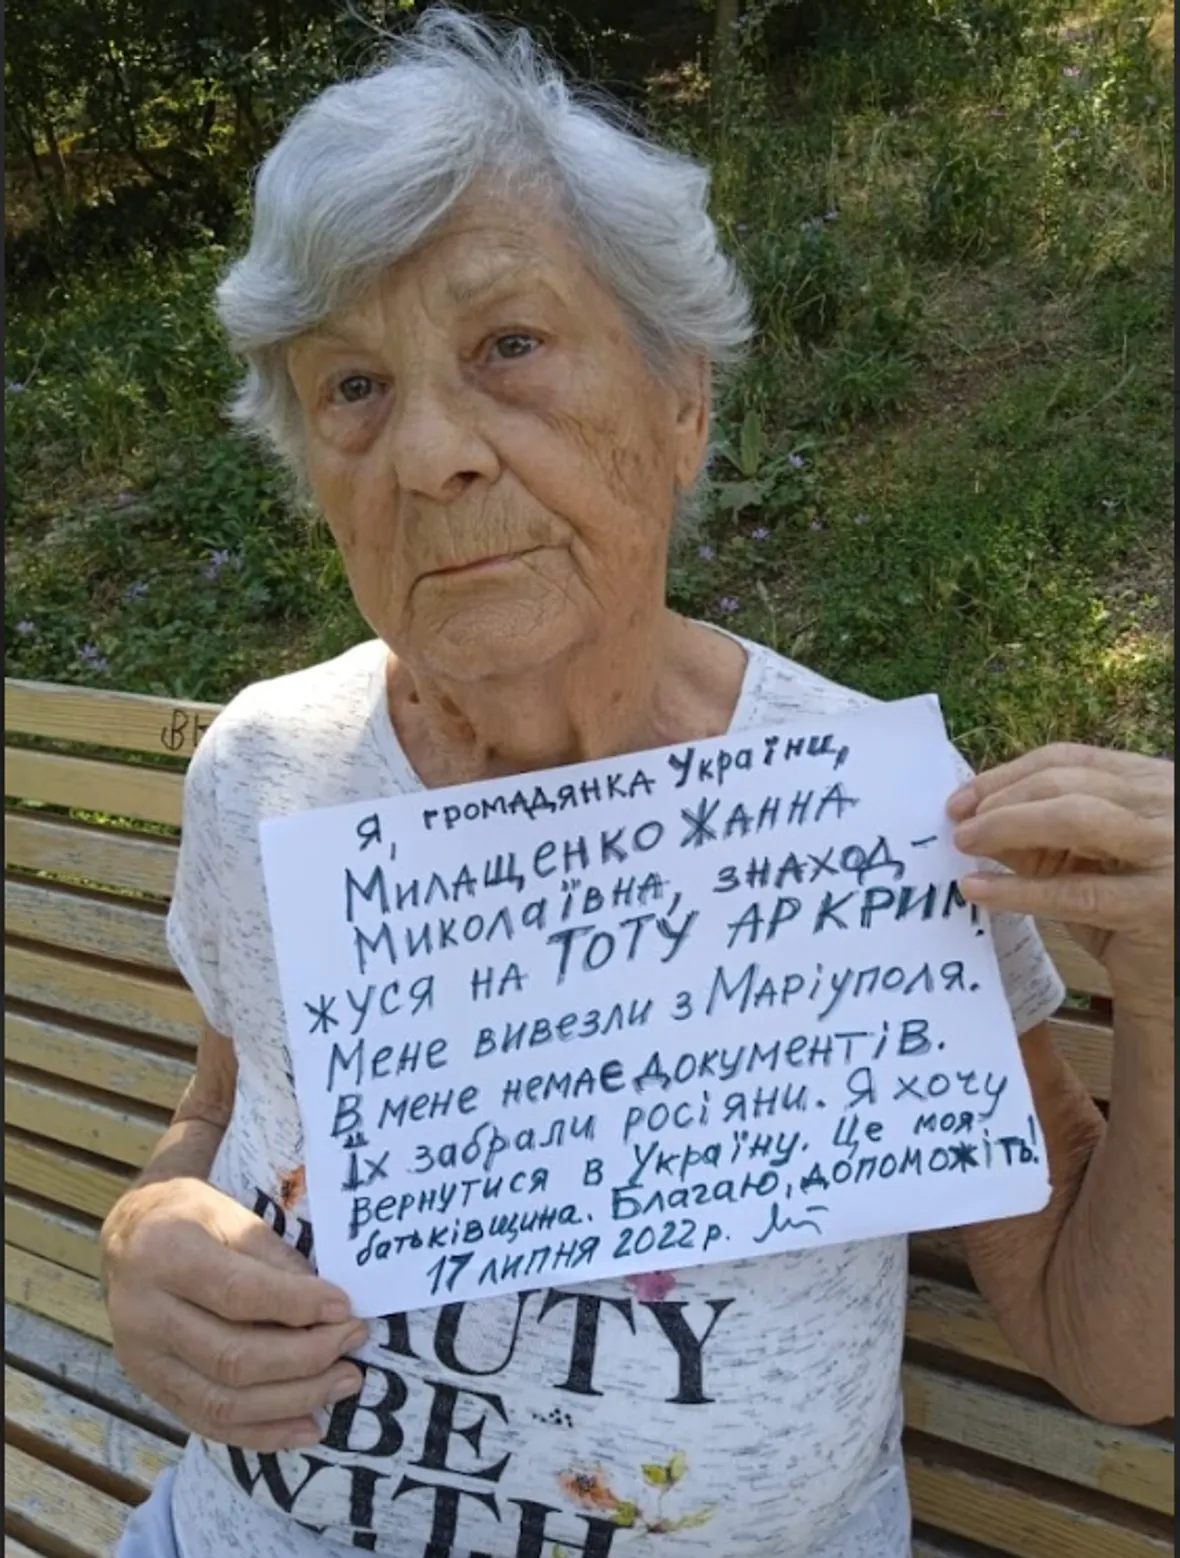 ВН
Я, громадянка України,
Милащенко Жанна
Миколаївна, знаход-
жуся на ТОТУ АР КРИМ!
Мене вивезли з Маріуполя.
В мене немає документів.
Їх забрали росіяни. Я хочу
вернутися в Україну. Це моя
батьківщина. Благаю, допоможіть!
17 липня 2022 р.
BE
WITH